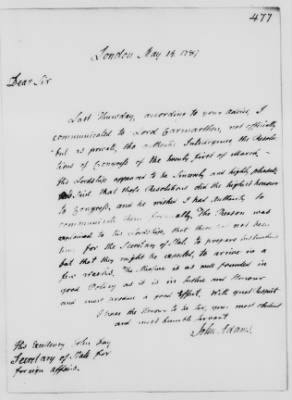 477
London May 14. 1787
Dear Sir
Last Thursday, according to your advice, I
communicated to Lord Carmarthen, not officially
but as private, the authentic Intelligence, the Resolu
tions of Congress of the twenty first of March
His Lordship appeared to be Sincerely and highly pleased;
Said that those Resolutions did the highest honour
to Congress, and he wished I had Authority to
communicate them formally. The Reason was
explained to his Lordship, that there had not been
time for the Secretary of State to prepare Instructions
but that they might be expected, to arrive in a
few Weeks. The Measure is as well founded in
good Policy as it is in Justice and Honour
and must produce a good Effect. With great Respect
I have the Honour to be, Sir, your most obedient
and most humble Servant
John Adams
His Excellency John Jay
Secretary of State for
foreign affairs.